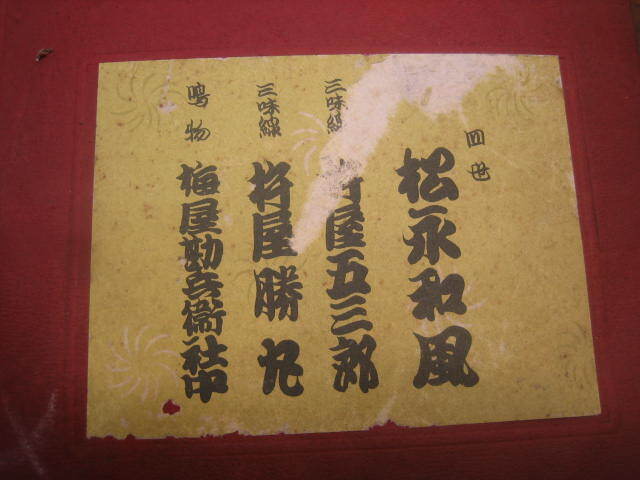 四世
松永和風
三味線
杵屋五三郎
三味線
杵屋勝丸
鳴物
梅屋勘兵衛社中